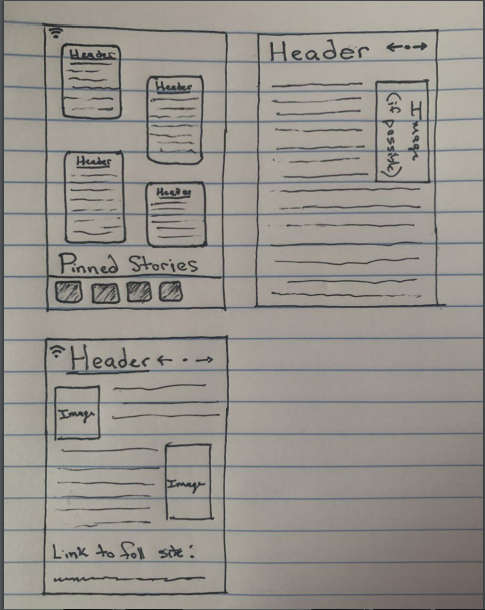 Header
Header
Header
Header
Pinned Stories
Header
Image
(if possible)
Header
Image
Image
Link to full site: